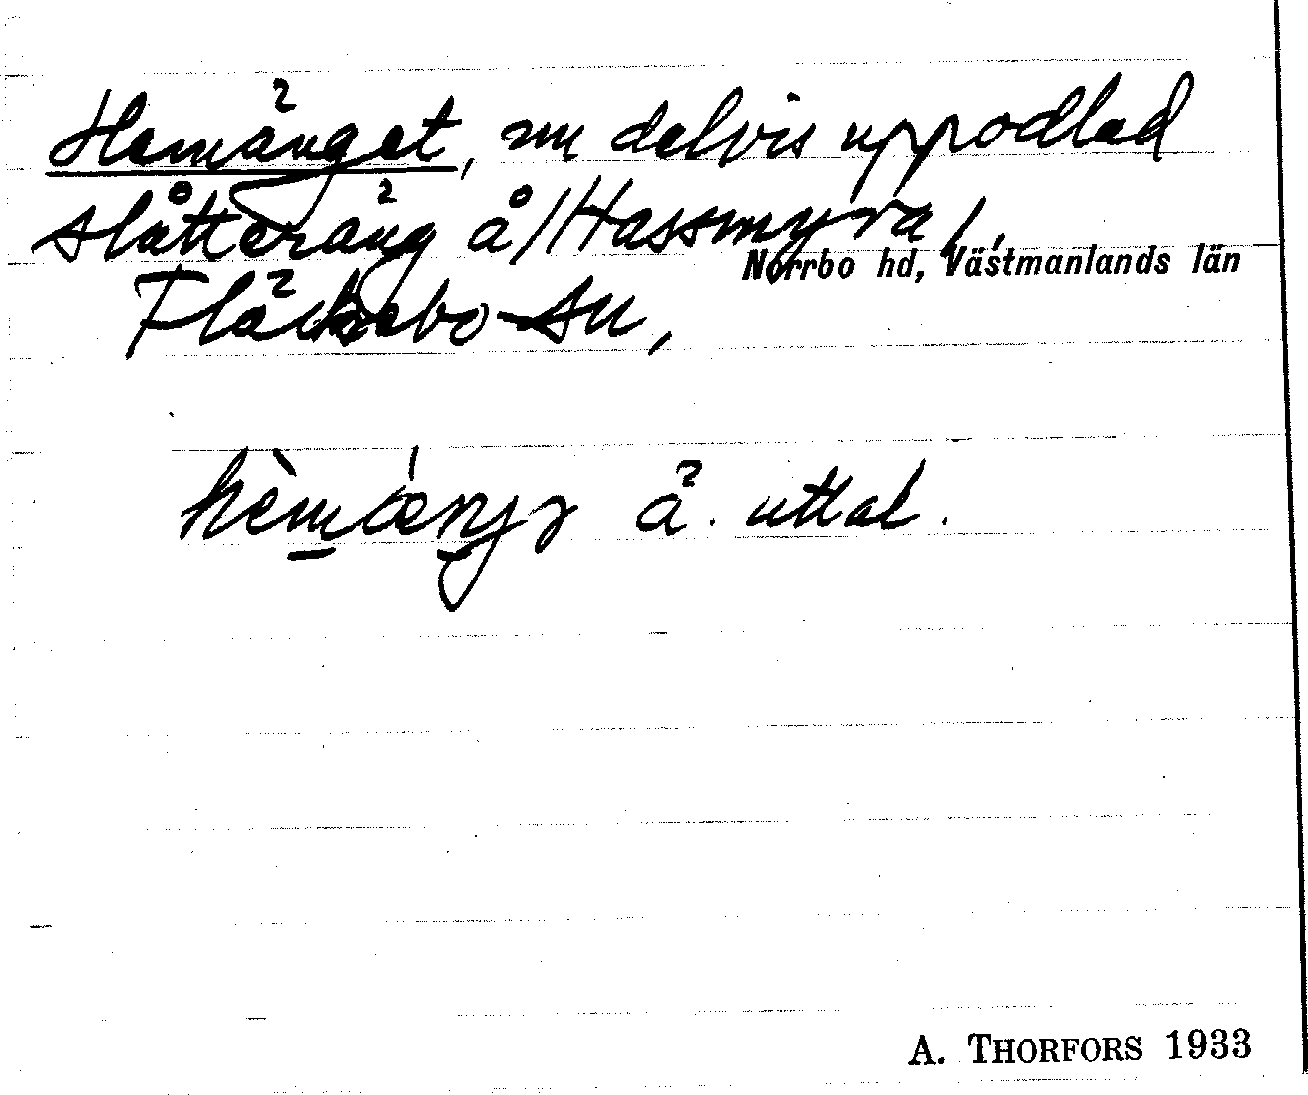 Hemänget, nu delvis uppodlad
slåtteräng å/Hassmyra/,
Norrbo hd, Västmanlands län
Fläckebo sn,
ä. uttal.
A. THORFORS 1933